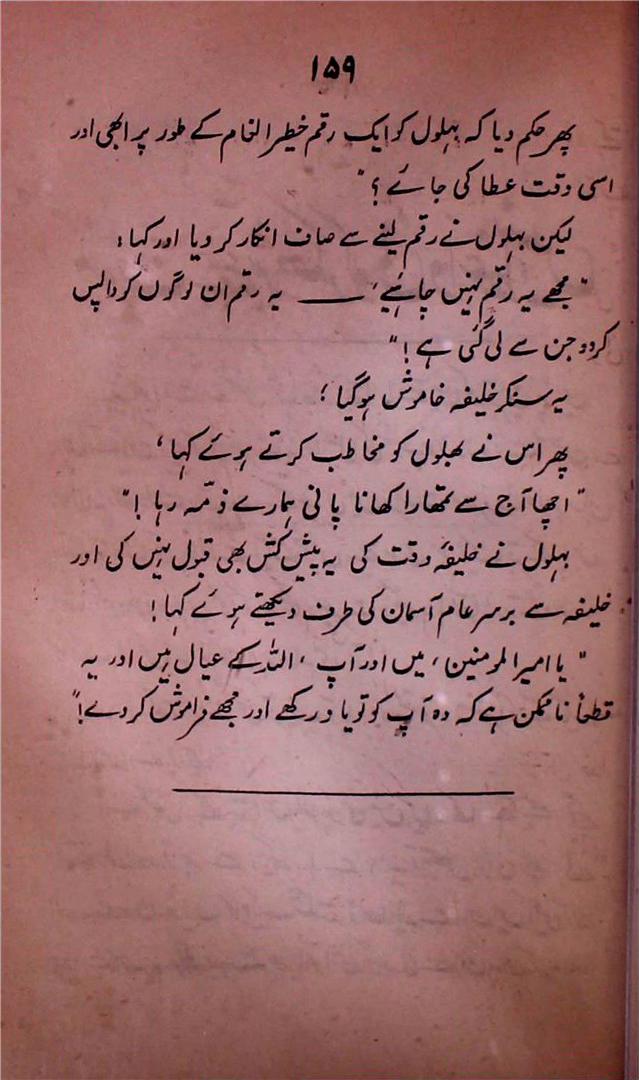 ۱۵۹
پھر حکم دیا کہ بہلول کو ایک رقم خطیر انعام کے طور پر ابھی اور
اسی وقت عطا کی جائے ؟"
لیکن بہلول نے رقم لینے سے صاف انکار کر دیا اور کہا :
" مجھے یہ رقم نہیں چاہیے ، ——— یہ رقم ان لوگوں کو واپس
کردو جن سے لی گئی ہے !"
یہ سنکر خلیفہ خاموش ہوگیا ؛
پھر اس نے بھلول کو مخاطب کرتے ہوئے کہا ،
" اچھا آج سے تمھارا کھانا پانی ہمارے ذمّہ رہا !"
بہلول نے خلیفۂ وقت کی یہ پیش کش بھی قبول نہیں کی اور
خلیفہ سے برسرِعام آسمان کی طرف دیکھتے ہوئے کہا !
" یا امیرالمومنین ، میں اور آپ ، اللہ کے عیال ہیں اور یہ
قطعاً ناممکن ہے کہ وہ آپ کو تو یاد رکھے اور مجھے فراموش کر دے !"